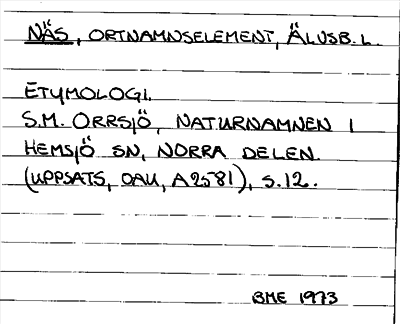 NÄS, ORTNAMNSELEMENT, ÄLVSB. L.
ETYMOLOGI.
S.M. ORRSJÖ, NATURNAMNEN I
HEMSJÖ SN, NORRA DELEN.
(UPPSATS, OAU, A2581), S.12.
BME 1973